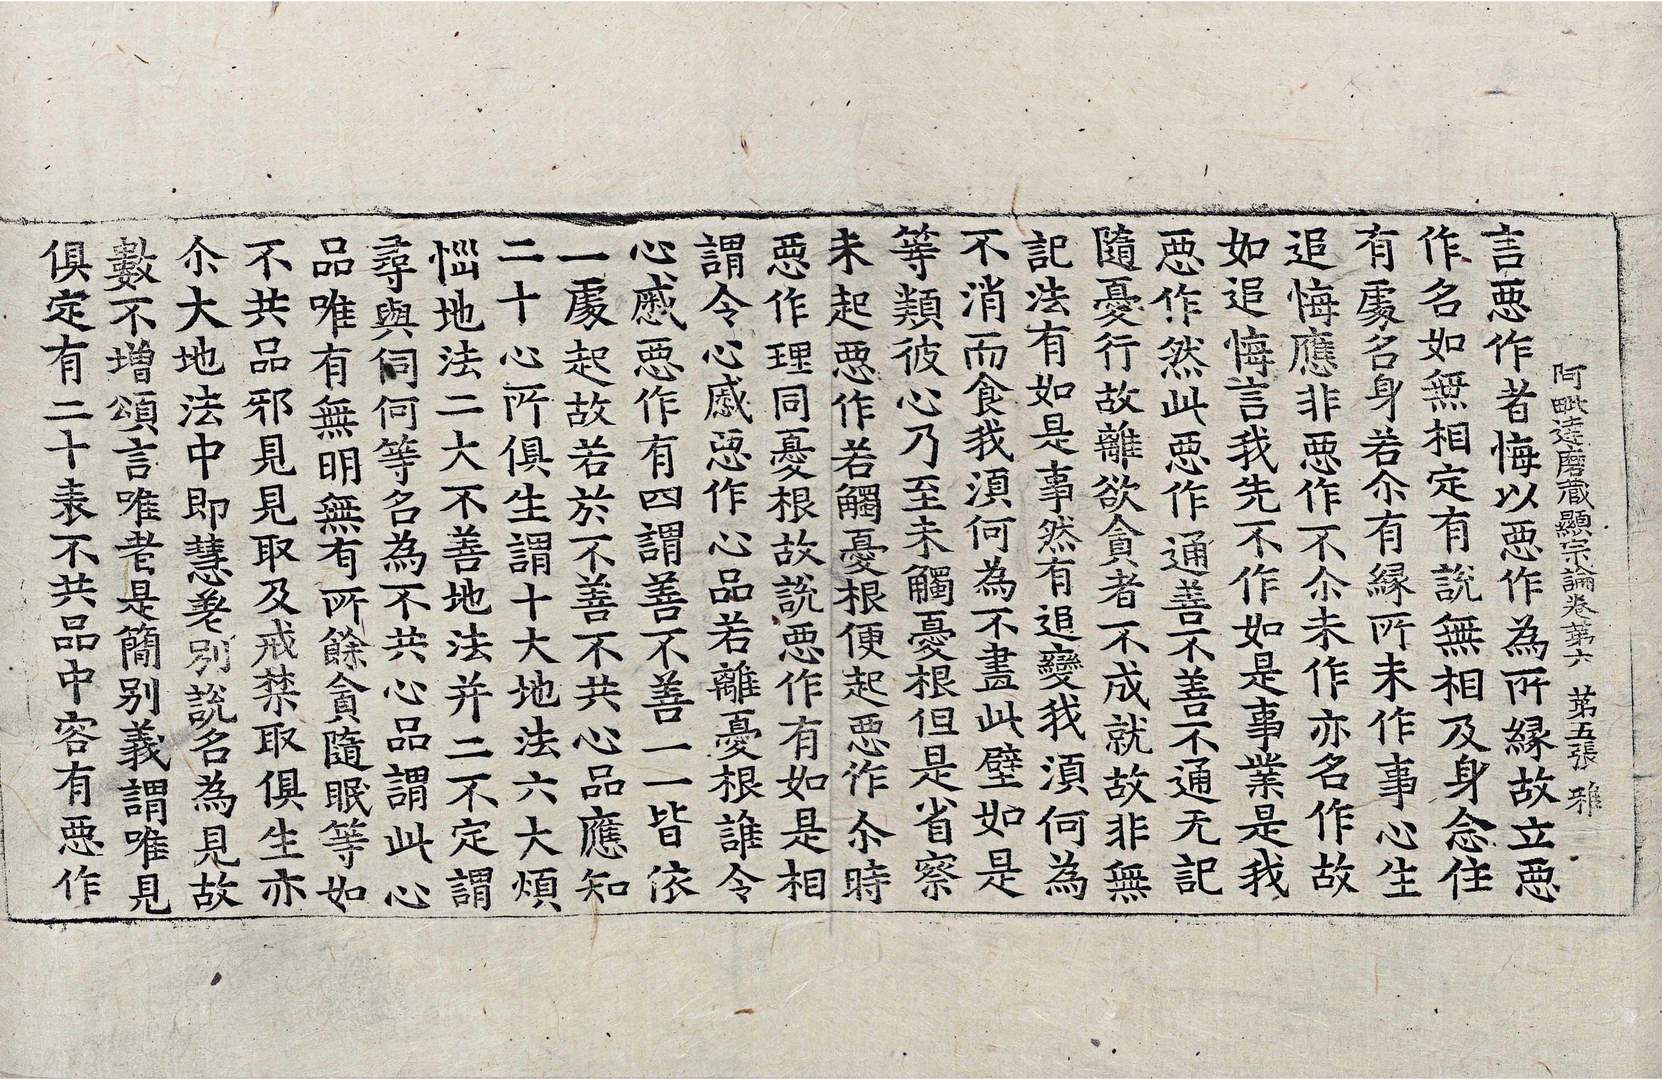 阿毗達磨藏顯宗論卷第六　第五張　雅
言惡作者悔以惡作為所縁故立惡
作名如無相定有說無相及身念住
有處名身若尒有縁所未作事心生
追悔應非惡作不尒未作亦名作故
如追悔言我先不作如是事業是我
惡作然此惡作通善不善不通无記
隨憂行故離欲貪者不成就故非無
記法有如是事然有追變我湏何為
不消而食我湏何為不畫此壁如是
等類彼心乃至未觸憂根但是省察
未起惡作若觸憂根便起惡作尒時
惡作理同憂根故說惡作有如是相
謂令心慼惡作心品若離憂根誰令
心慼惡作有四謂善不善一一皆依
一處起故若於不善不共心品應知
二十心所俱生謂十大地法六大煩
惱地法二大不善地法并二不定謂
尋與伺何等名為不共心品謂此心
品唯有無明無有所餘貪隨眠等如
不共品邪見見取及戒禁取俱生亦
尒大地法中即慧差別說名為見故
數不增頌言唯者是簡別義謂唯見
俱定有二十表不共品中容有惡作